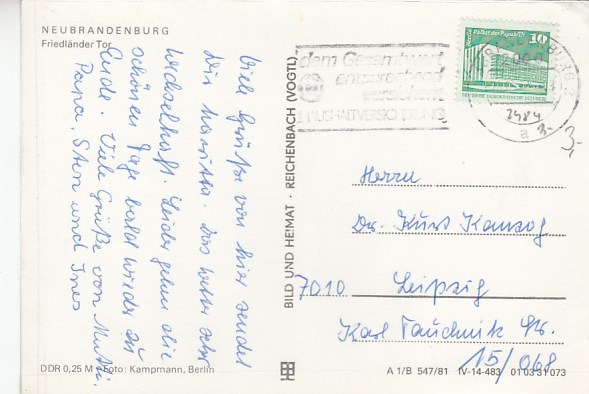 NEUBRANDENBURG
Friedländer Tor
Viele Grüße von hier sendet
Dir
Das Wetter sehr
wechselhaft. Leider gehen die
schönen Tage bald wieder zu
Ende. Viele Grüße von Mutti,
Papa, Sten und Ines
DDR 0,25 M Foto: Kampmann, Berlin
BILD UND HEIMAT · REICHENBACH (VOGTL)
dem Gesamtwert
entsprechend
versichern
HAUSHALTVERSICHERUNG
Palast der Republik
10
a
3,-
3,-
Herrn
Dr. Kurt
7010 Leipzig
Karl Tauchnitz Str.
15/068
A 1/B 547/81 IV-14-483 01 03 31 073